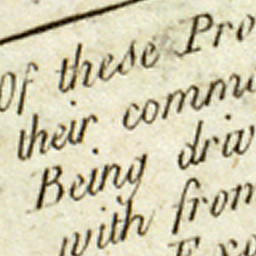 Of these Pro
their commu
Being driv
with from